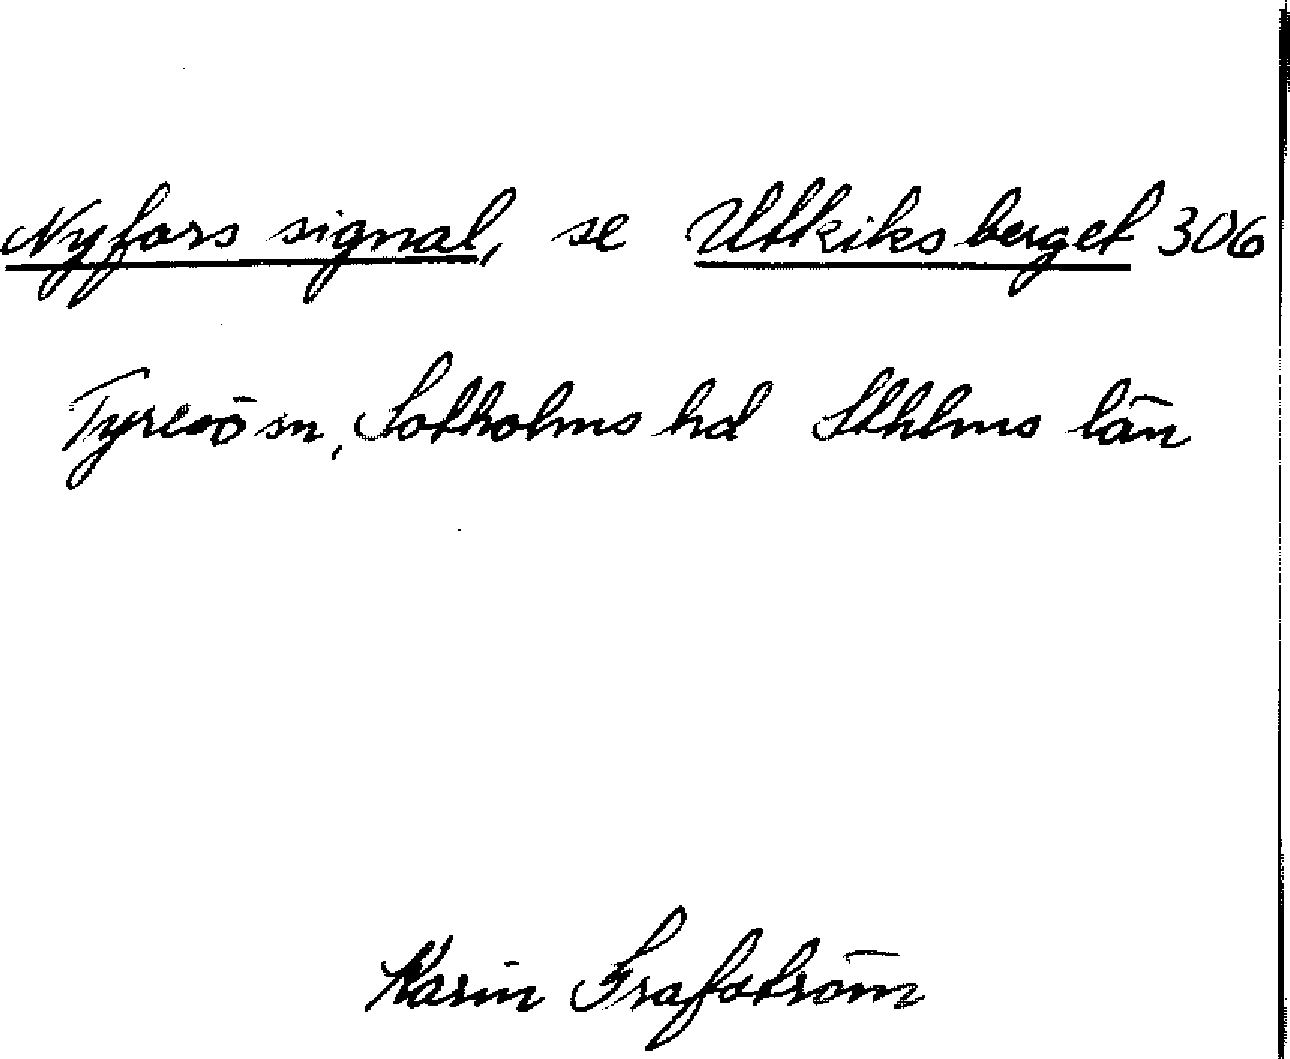 Nyfors signal, se Utkiksberget 306
Tyresö sn, Sotholms hd Sthlms län
Karin Frafström